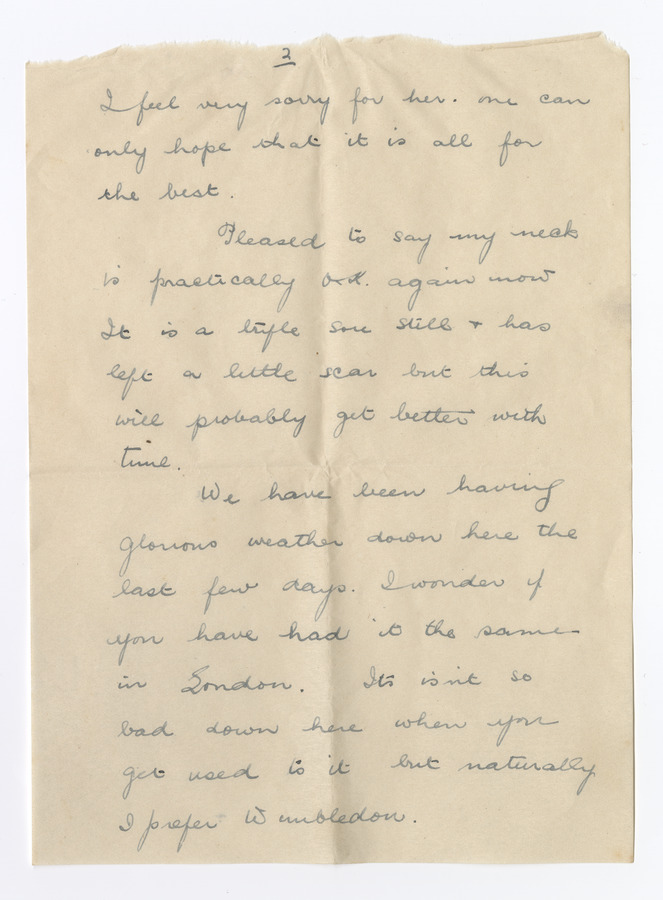 2
I feel very sorry for her. one can
only hope that it is all for
the best.
Pleased to say my neck
is practically O.K. again now
It is a trifle sore still + has
left a little scar but this
will probably get better with
time.
We have been having
glorious weather down here the
last few days. I wonder if
you have had it the same
in London. Its isnt so
bad down here when you
get used to it but naturally
I prefer Wimbledon.